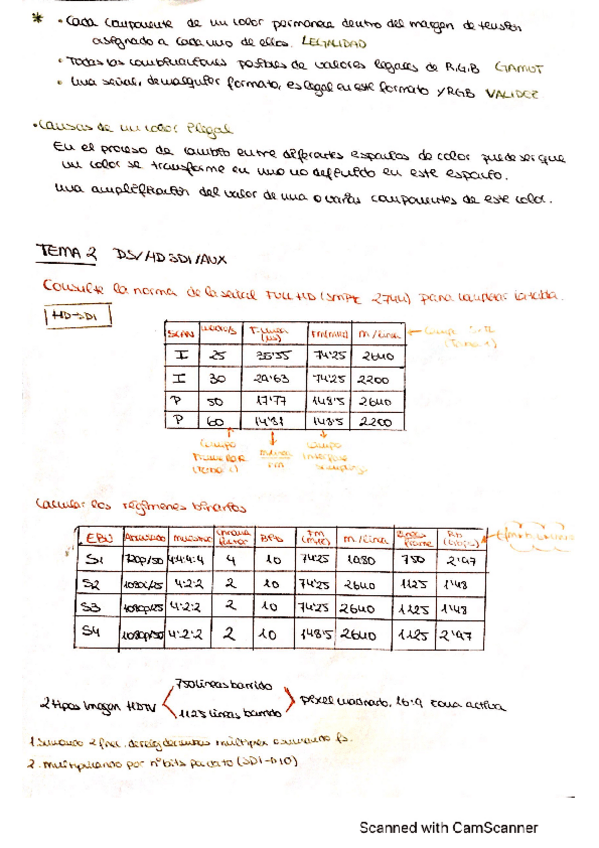 * · Cada componente de un color permanezca dentro del margen de tensión
asignado a cada uno de ellos. LEGALIDAD
· Todas las combinaciones posibles de valores legales de R.G.B GAMUT
· Una señal, de cualquier formato, es legal en este formato y RGB VALIDEZ
· Causas de un color ilegal
En el proceso de cambio entre diferentes espacios de color puede ser que
un color se transforme en uno no definido en este espacio.
una amplificación del valor de una o varias componentes de este color.
TEMA 2 DS/HD SDI/AUX
Consulte la norma de la señal FULL HD (SMPTE 274M) para completar la tabla.
HD-SDI
SCAN T.línea (μs) FM(MHz) M/línea
I 25 35'55 74'25 2640
I 30 29'63 74'25 2200
P 50 17'77 148'5 2640
P 60 14'81 148'5 2200
(Tema 1)
Calcular los regímenes binarios
EBU muestreo Bits FM (MHz) M/línea Rb (Gb/s)
S1 720p/50 4:4:4:4 4 10 74'25 1980 750 2'97
S2 1080i/25 4:2:2 2 10 74'25 2640 1125 1'48
S3 1080p/25 4:2:2 2 10 74'25 2640 1125 1'48
S4 1080p/50 4:2:2 2 10 148'5 2640 1125 2'97
750 líneas barrido
2 tipos imagen HDTV píxel cuadrado, 16:9 zona activa
1125 líneas barrido
2. multiplicando por nº bits
Scanned with CamScanner